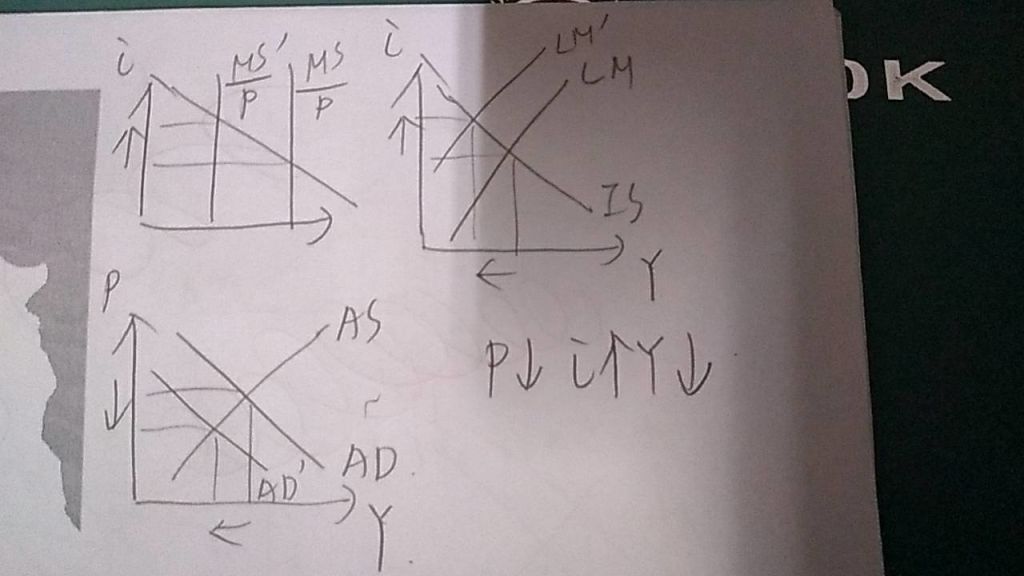 i
MS'
P
MS
P
i
LM'
LM
IS
Y
P
AS
AD
AD'
Y
P↓ i↑ Y↓
OK